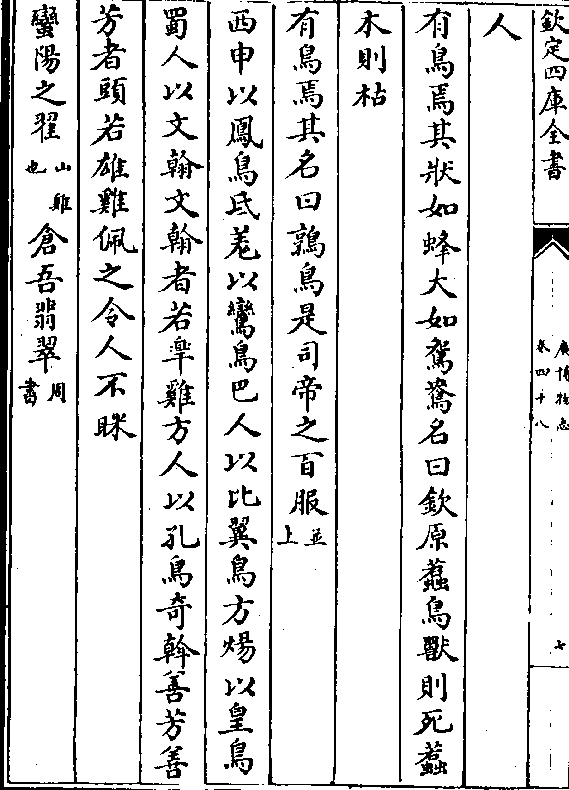 欽定四庫全書
廣博物志
卷四十八
七
人
有鳥焉其狀如蜂大如鴛鴦名曰欽原蠚鳥獸則死蠚
木則枯
有鳥焉其名曰鶉鳥是司帝之百服並上
西申以鳳鳥氐羌以鸞鳥巴人以比翼鳥方煬以皇鳥
蜀人以文翰文翰者若皐雞方人以孔鳥奇榦善芳善
芳者頭若雄雞佩之令人不眯
蠻陽之翟山雞也倉吾翡翠周書